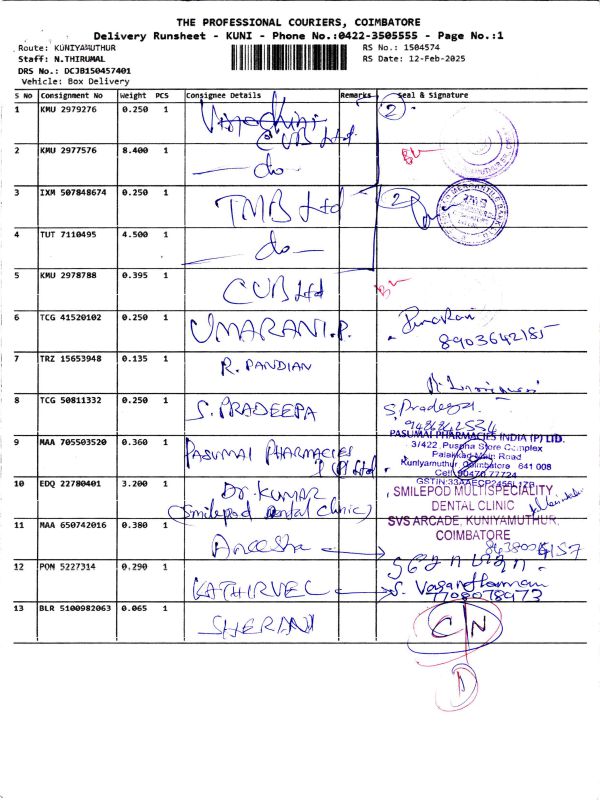 THE PROFESSIONAL COURIERS, COIMBATORE
Delivery Runsheet - KUNI - Phone No.:0422-3505555 - Page No.:1
Route: KUNIYAMUTHUR
RS No.: 1504574
Staff: N.THIRUMAL
RS Date: 12-Feb-2025
DRS No.: DCJB150457401
Vehicle: Box Delivery
S No Consignment No Weight PCS Consignee Details Remarks Seal & Signature
1 KMU 2979276 0.250 1 CUB Ltd 2
2 KMU 2977576 8.400 1 do
3 IXM 507848674 0.250 1 TMB Ltd 2
4 TUT 7110495 4.500 1 do
5 KMU 2978788 0.395 1 CUB Ltd
6 TCG 41520102 0.250 1 UMARANI.P.
8903642185
7 TRZ 15653948 0.135 1 R. PANDIAN
8 TCG 50811332 0.250 1 S. PRADEEPA S. Pradeepa.
9 MAA 705503520 0.360 1 PASUMAI PHARMACIES I (P) Ltd
PASUMAI PHARMACIES INDIA (P) LTD.
3/422, Puspha Store Complex
Palakkad Main Road
Kuniyamuthur, Coimbatore 641 008
Cell: 90476 77724
10 EDQ 22780401 3.200 1 Dr. KUMAR
(Smilepod Dental Clinic)
SMILEPOD MULTISPECIALITY
DENTAL CLINIC
SVS ARCADE, KUNIYAMUTHUR,
COIMBATORE
11 MAA 650742016 0.380 1 Aneesha
12 PON 5227314 0.290 1 KATHIRVEL
7708078973
13 BLR 5100982063 0.065 1 SHERANI C N
D